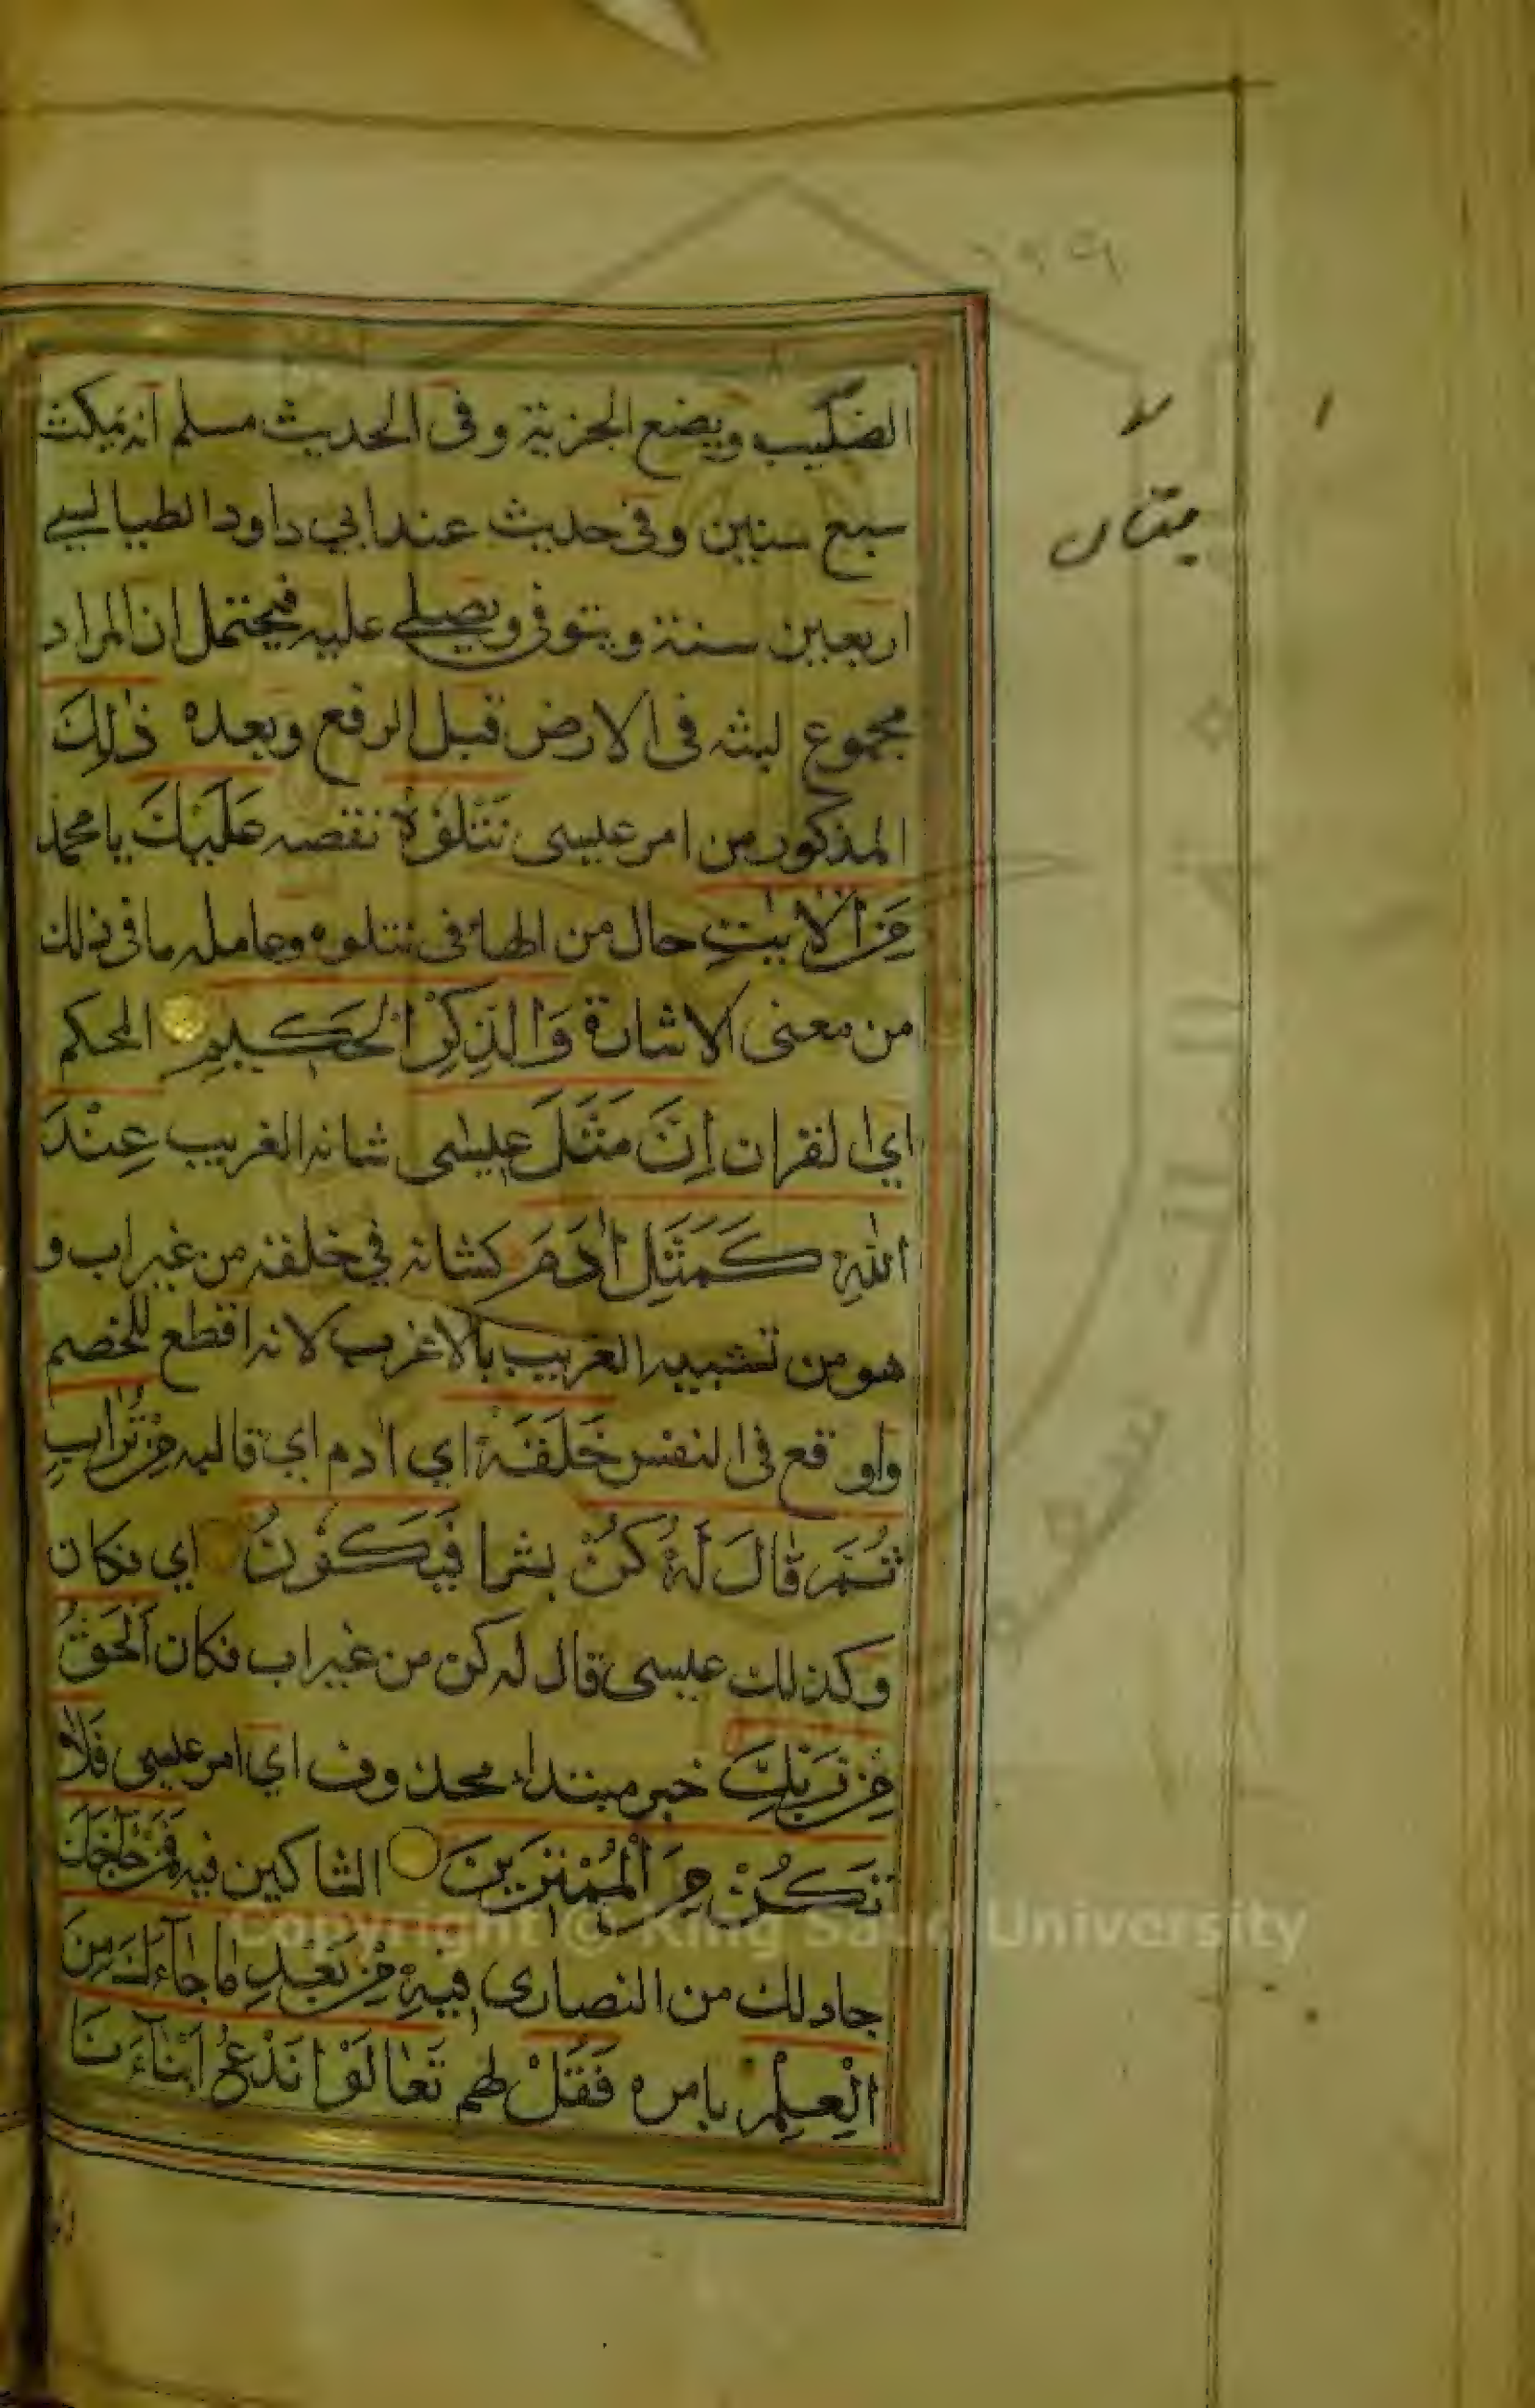 الصليب ويضع الجزية وفى الحديث مسلم انه يمكث
سبع سنين وفى حديث عند ابي داود الطيالسي
اربعين سنة ويتوفى ويصلى عليه فيحتمل ان المراد
مجموع لبثه فى الارض قبل الرفع وبعده ذٰلِكَ
المذكور من امر عيسى نَتْلُوْهُ نقصه عَلَيْكَ يا محمد
مِنَ الْاٰيٰتِ حال من الهاء فى نتلوه وعامله ما فى ذلك
من معنى الاشارة وَالذِّكْرِ الْحَكِيْمِ المحكم
اي القران اِنَّ مَثَلَ عِيسٰى شانه الغريب عِنْدَ
اللّٰهِ كَمَثَلِ اٰدَمَ كشانه في خلقه من غير اب و
هو من تشبيه الغريب بالاغرب لانه اقطع للخصم
واوقع فى النفس خَلَقَهٗ اي ادم اي قالبه مِنْ تُرَابٍ
ثُمَّ قَالَ لَهٗ كُنْ بشرا فَيَكُوْنُ اي فكان
وكذلك عيسى قال له كن من غير اب فكان اَلْحَقُّ
مِنْ رَبِّكَ خبر مبتداء محذوف اي امر عيسى فَلَا
تَكُنْ مِنَ الْمُمْتَرِيْنَ الشاكين فيه فَمَنْ حَاجَّكَ
جادلك من النصارى فِيْهِ مِنْ بَعْدِ مَا جَآءَكَ مِنَ
الْعِلْمِ بامره فَقُلْ لهم تَعَالَوْا نَدْعُ اَبْنَآءَنَا
Copyright © King Saud University